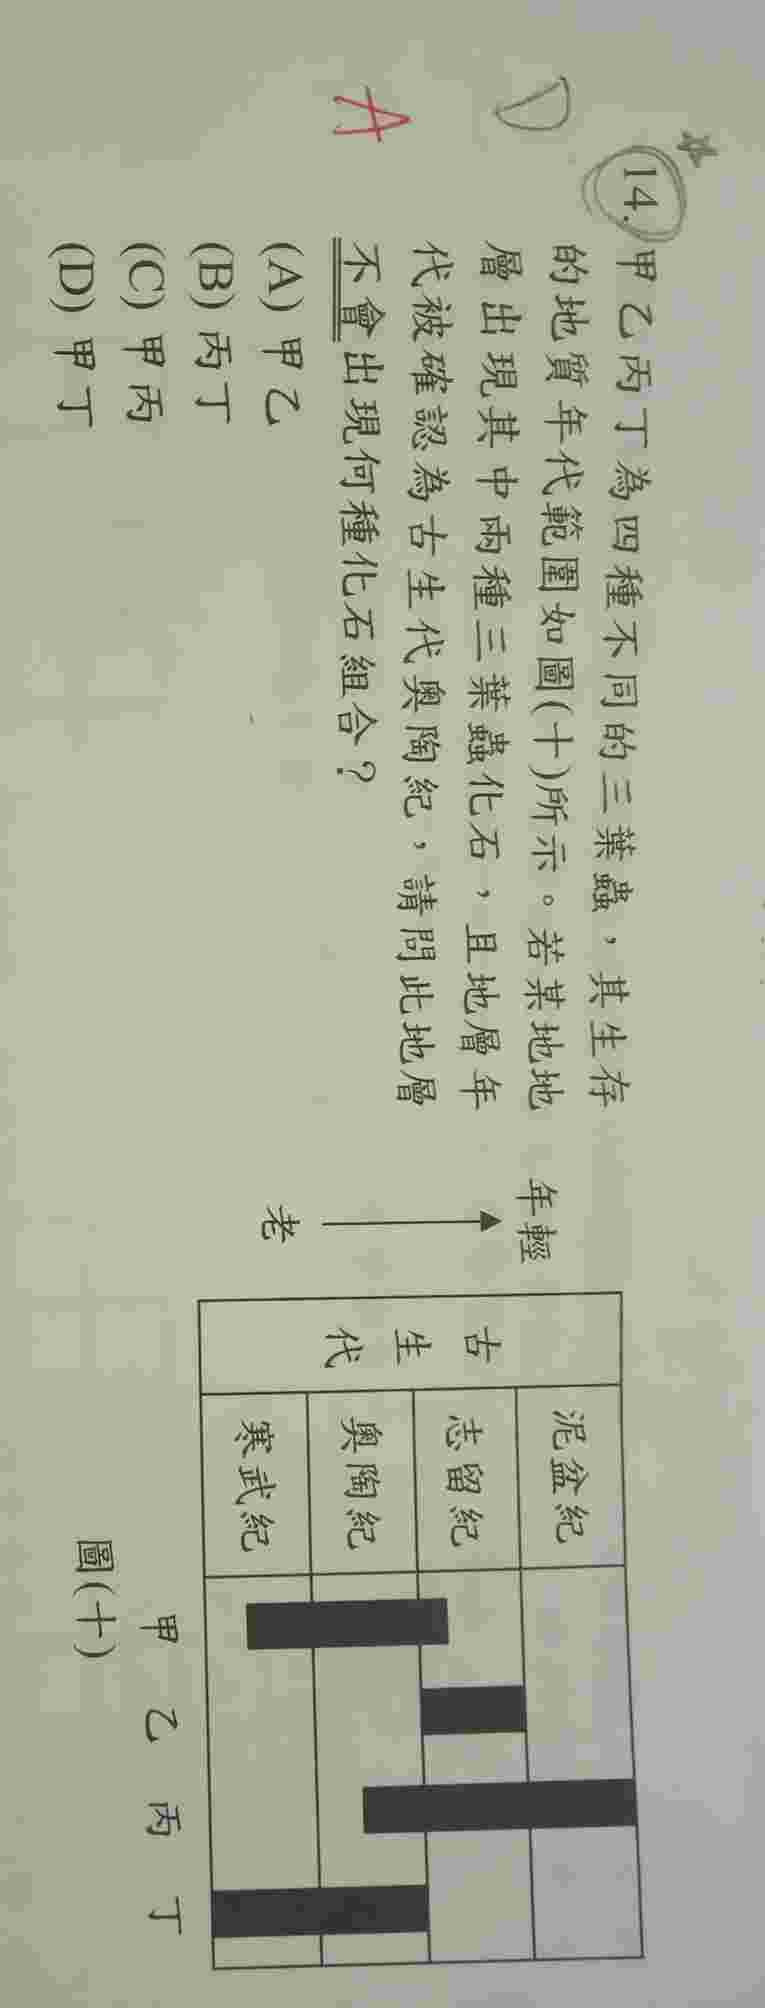 D
A
14. 甲乙丙丁為四種不同的三葉蟲，其生存
的地質年代範圍如圖(十)所示。若某地地
層出現其中兩種三葉蟲化石，且地層年
代被確認為古生代奧陶紀，請問此地層
不會出現何種化石組合？
(A) 甲乙
(B) 丙丁
(C) 甲丙
(D) 甲丁
年輕
老
古生代
泥盆紀
志留紀
奧陶紀
寒武紀
甲 乙 丙 丁
圖(十)